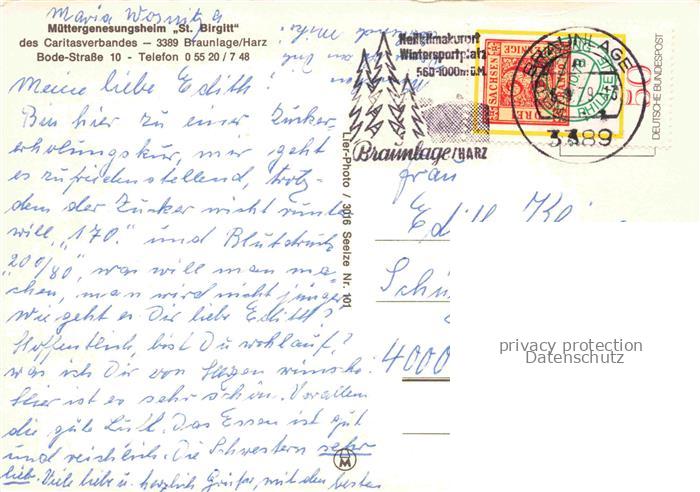 Maria
Müttergenesungsheim „St. Birgitt"
des Caritasverbandes — 3389 Braunlage/Harz
Bode-Straße 10 - Telefon 0 55 20 / 7 48
Meine liebe Edith!
Bin hier zu einer Zucker-
erholungskur, mir geht
es zufriedenstellend, trotz-
dem der Zucker nicht runter
will, „170." und Blutdruck
„200/80", was will man ma-
chen, man wird nicht jünger
wie geht es Dir liebe Edith?
Hoffentlich, bist Du wohlauf,
was ich Dir von Herzen wünsche.
Hier ist es sehr schön. Vorallem
die gute Luft. Das Essen ist gut
und reichlich. Die Schwestern sehr
lieb. Viele liebe u. herzlich Grüße, mit den besten
Lier-Photo / 3016 Seelze Nr. 101
Heilklimakurort
Wintersportplatz
560-1000m ü.M.
Braunlage/HARZ
SACHSEN
BRAUNLAGE 1
3389
DEUTSCHE BUNDESPOST
Frau
Edith
4000
privacy protection
Datenschutz
M